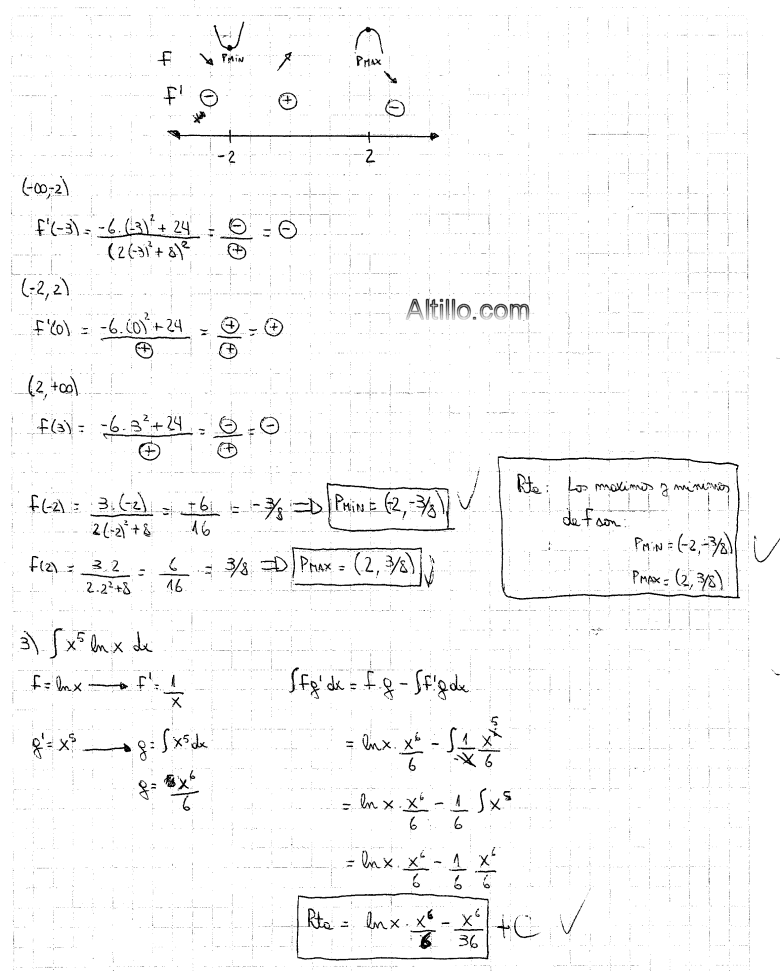 f ↘ PMIN ↗ PMAX ↘
f' ⊖ ⊕ ⊖
-2 2
(-∞,-2)
f'(-3) = -6.(-3)² + 24 / (2(-3)² + 8)² = ⊖/⊕ = ⊖
(-2,2)
Altillo.com
f'(0) = -6.(0)² + 24 / ⊕ = ⊕/⊕ = ⊕
(2,+∞)
f(3) = -6.3² + 24 / ⊕ = ⊖/⊕ = ⊖
f(-2) = 3.(-2) / 2(-2)² + 8 = -6/16 = -3/8 ⇒ PMIN = (-2, -3/8) ✓
f(2) = 3.2 / 2.2² + 8 = 6/16 = 3/8 ⇒ PMAX = (2, 3/8) ✓
Rta: Los maximos y minimos
de f son:
PMIN = (-2, -3/8) ✓
PMAX = (2, 3/8)
3) ∫ x⁵ ln x dx
f = ln x → f' = 1/x
g' = x⁵ → g = ∫ x⁵ dx
g = x⁶/6
∫ f g' dx = f . g - ∫ f' g dx
= ln x . x⁶/6 - ∫ 1/x x⁵/6
= ln x . x⁶/6 - 1/6 ∫ x⁵
= ln x . x⁶/6 - 1/6 x⁶/6
Rta = ln x . x⁶/6 - x⁶/36 + C ✓